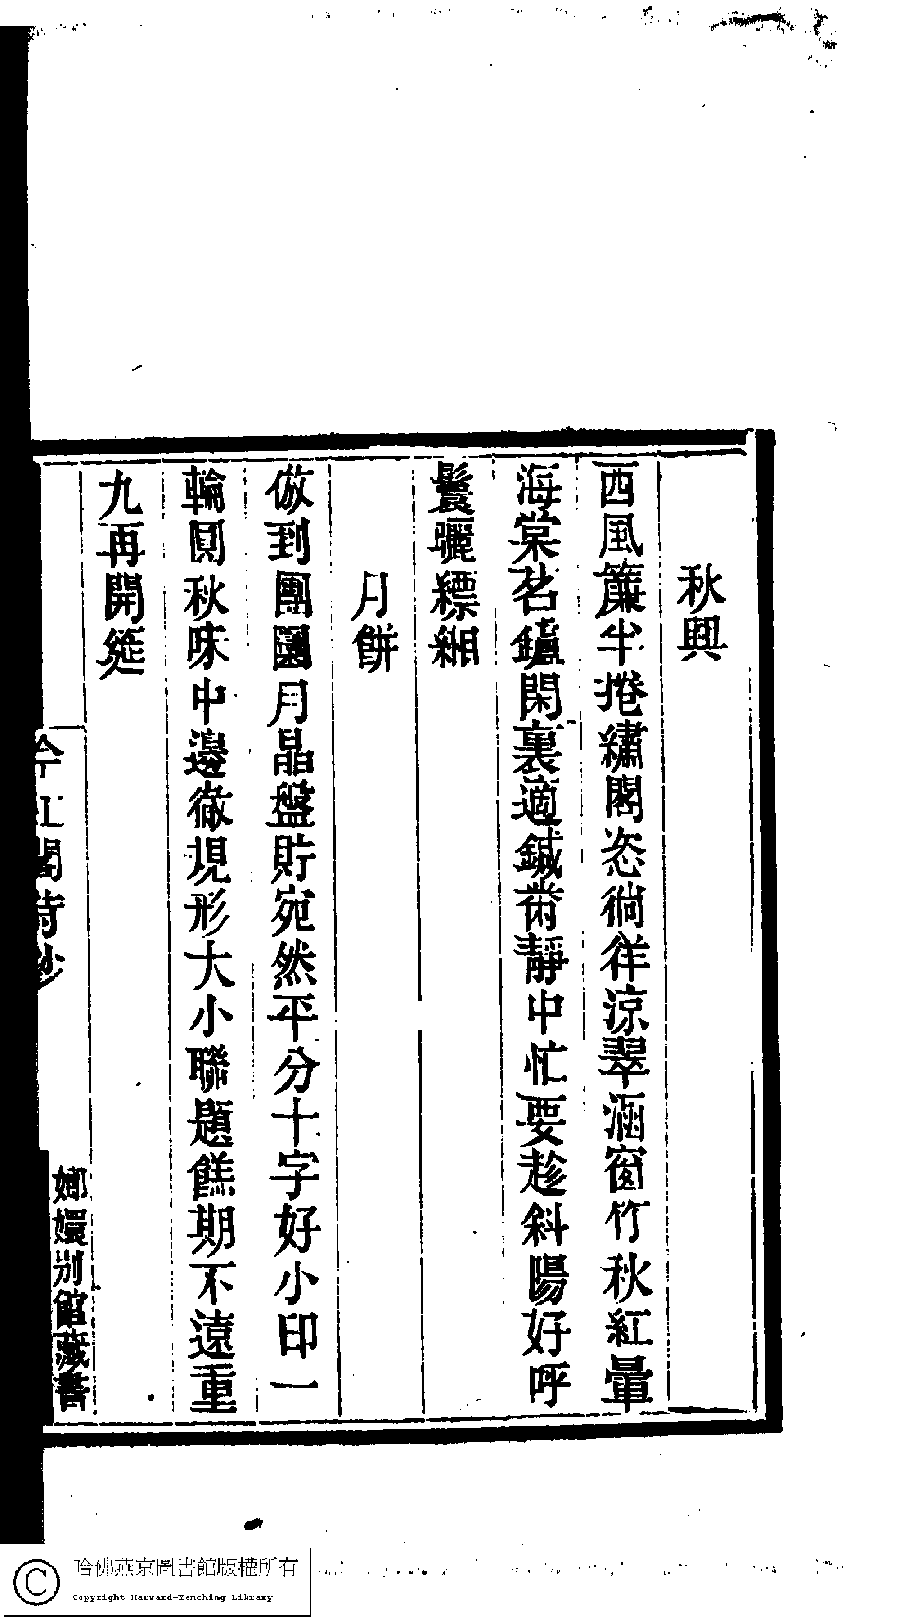 秋興
西風簾半捲繡閣恣徜徉涼翠涵窗竹秋紅暈
海棠茗鑪閑裏適鍼黹靜中忙要趁斜陽好呼
鬟曬縹緗
月餅
做到團圞月晶盤貯宛然平分十字好小印一
輪圓秋味中邊徹規形大小聯題餻期不遠重
九再開筵
今紅閣詩鈔
嫏嬛別館藏書
哈佛燕京圖書館版權所有
Copyright Harvard-Yenching Library